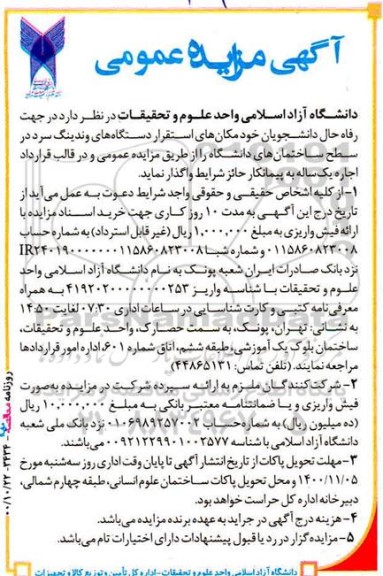 آگهی مزایده عمومی
دانشگاه آزاد اسلامی واحد علوم و تحقیقات در نظر دارد در جهت
رفاه حال دانشجویان خود مکان‌های استقرار دستگاه‌های وندینگ سرد در
سطح ساختمان‌های دانشگاه را از طریق مزایده عمومی و در قالب قرارداد
اجاره یک‌ساله به پیمانکار حائز شرایط واگذار نماید.
۱- از کلیه اشخاص حقیقی و حقوقی واجد شرایط دعوت به عمل می‌آید از
تاریخ درج این آگهی به مدت ۱۰ روز کاری جهت خرید اسناد مزایده با
ارائه فیش واریزی به مبلغ ۱,۰۰۰,۰۰۰ ریال (غیر قابل استرداد) به شماره حساب
۰۱۱۵۸۶۰۸۲۳۰۰۸ و شماره شبا IR۲۴۰۱۹۰۰۰۰۰۰۰۱۱۵۸۶۰۸۲۳۰۰۸
نزد بانک صادرات ایران شعبه پونک به نام دانشگاه آزاد اسلامی واحد
علوم و تحقیقات با شناسه واریز ۴۱۹۲۰۲۰۰۰۰۰۰۰۲۵۳ به همراه
معرفی‌نامه کتبی و کارت شناسایی در ساعات اداری ۰۷:۳۰ لغایت ۱۴:۵۰
به نشانی: تهران، پونک، به سمت حصارک، واحد علوم و تحقیقات،
ساختمان بلوک یک آموزشی، طبقه ششم، اتاق شماره ۶۰۱، اداره امور قراردادها
مراجعه نمایند. (تلفن تماس: ۴۴۸۶۵۱۳۱)
۲- شرکت‌کنندگان ملزم به ارائه سپرده شرکت در مزایده به‌صورت
فیش واریزی و یا ضمانتنامه معتبر بانکی به مبلغ ۱۰,۰۰۰,۰۰۰ ریال
(ده میلیون ریال) به شماره حساب ۰۱۰۶۹۸۹۲۵۷۰۰۲ نزد بانک ملی شعبه
دانشگاه آزاد اسلامی با شناسه ۰۰۹۲۱۲۲۹۹۰۱۰۰۲۵۷۷ می‌باشند.
۳- مهلت تحویل پاکات از تاریخ انتشار آگهی تا پایان وقت اداری روز سه‌شنبه مورخ
۱۴۰۰/۱۱/۰۵ و محل تحویل پاکات ساختمان علوم انسانی، طبقه چهارم شمالی،
دبیرخانه اداره کل حراست خواهد بود.
۴- هزینه درج آگهی در جراید به عهده برنده مزایده می‌باشد.
۵- مزایده‌گزار در رد یا قبول پیشنهادات دارای اختیارات تام می‌باشد.
دانشگاه آزاد اسلامی واحد علوم و تحقیقات - اداره کل تأمین و توزیع کالا و تجهیزات